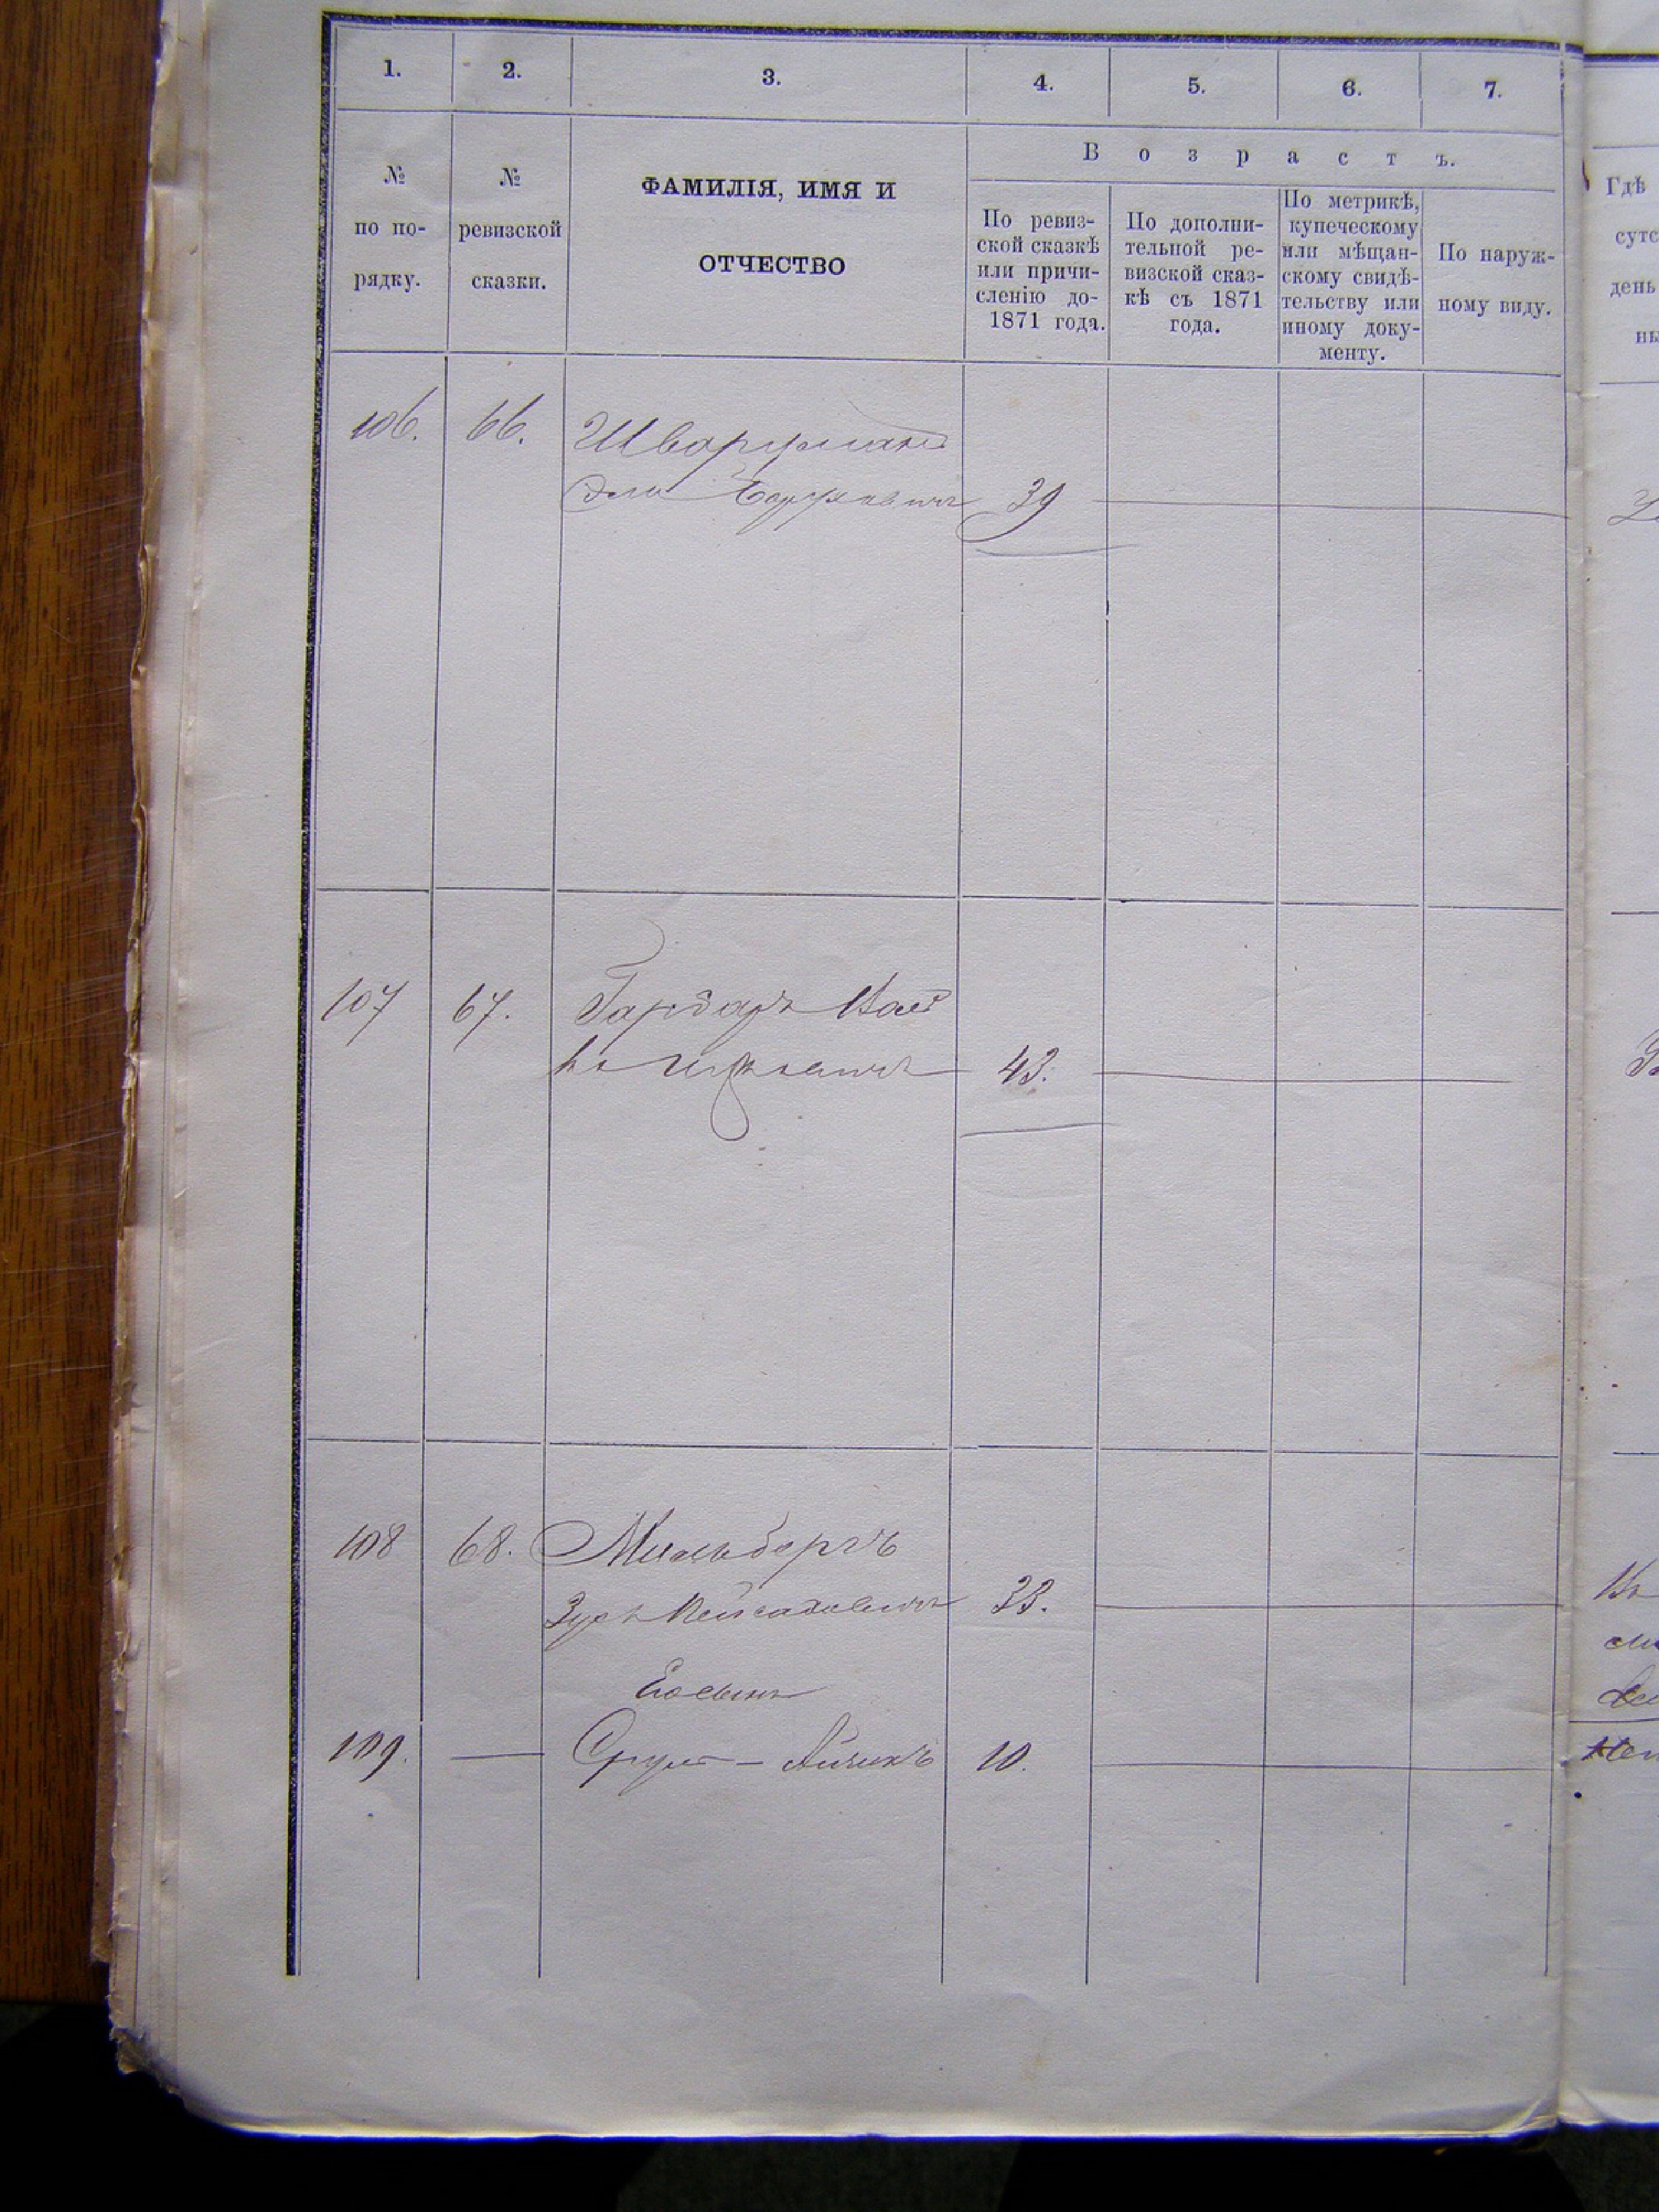 1. 2. 3. 4. 5. 6. 7.
№ по порядку.
№ ревизской сказки.
ФАМИЛІЯ, ИМЯ И
ОТЧЕСТВО
Возрастъ.
По ревиз-
ской сказкѣ
или причи-
сленію до-
1871 года.
По дополни-
тельной ре-
визской сказ-
кѣ съ 1871
года.
По метрикѣ,
купеческому
или мѣщан-
скому свидѣ-
тельству или
иному доку-
менту.
По наруж-
ному виду.
Гдѣ
сутс
день
ны
106. 66. Шварцманъ
Эли Борухович 39
107 67. Гарбаръ
43.
108 68. Мильбергъ
Зусь 33.
Его сынъ
109. — Сруль - Айзикъ 10.